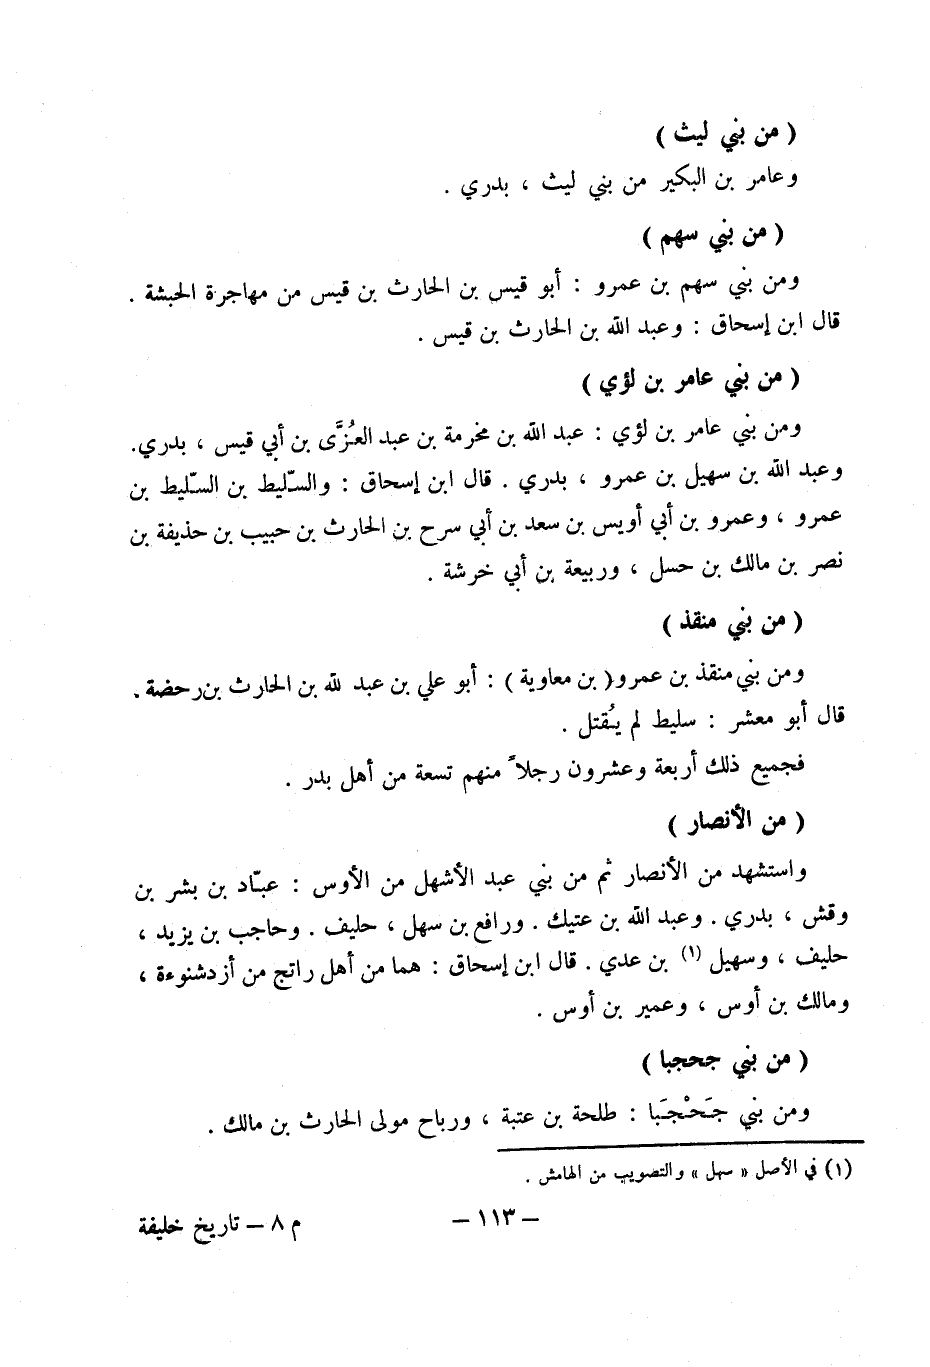 ( من بني ليث )
وعامر بن البكير من بني ليث ، بدري .
( من بني سهم )
ومن بني سهم بن عمرو : أبو قيس بن الحارث بن قيس من مهاجرة الحبشة .
قال ابن إسحاق : وعبد الله بن الحارث بن قيس .
( من بني عامر بن لؤي )
ومن بني عامر بن لؤي : عبد الله بن مخرمة بن عبد العُزَّى بن أبي قيس ، بدري.
وعبد الله بن سهيل بن عمرو ، بدري . قال ابن إسحاق : والسّليط بن السّليط بن
عمرو ، وعمرو بن أبي أويس بن سعد بن أبي سرح بن الحارث بن حبيب بن حذيفة بن
نصر بن مالك بن حسل ، وربيعة بن أبي خرشة .
( من بني منقذ )
ومن بني منقذ بن عمرو( بن معاوية ) : أبو علي بن عبد لله بن الحارث بن رحضة .
قال أبو معشر : سليط لم يُقتل .
فجميع ذلك أربعة وعشرون رجلاً منهم تسعة من أهل بدر .
( من الأنصار )
واستشهد من الأنصار ثم من بني عبد الأشهل من الأوس : عبّاد بن بشر بن
وقش ، بدري . وعبد الله بن عتيك . ورافع بن سهل ، حليف . وحاجب بن يزيد ،
حليف ، وسهيل (١) بن عدي . قال ابن إسحاق : هما من أهل راتج من أزدشنوءة ،
ومالك بن أوس ، وعمير بن أوس .
( من بني جحجبا )
ومن بني جَحْجَبا : طلحة بن عتبة ، ورباح مولى الحارث بن مالك .
(١) في الأصل « سهل » والتصويب من الهامش .
– ١١٣ –
م ٨ – تاريخ خليفة